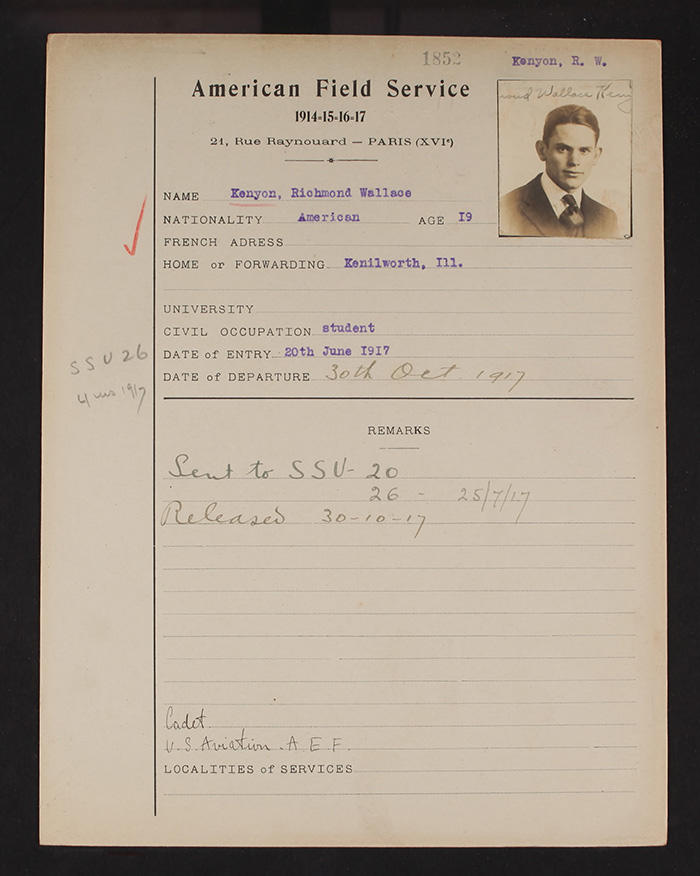 1852
Kenyon, R. W.
American Field Service
1914-15-16-17
21, Rue Raynouard — PARIS (XVIe)
Wallace
NAME Kenyon, Richmond Wallace
NATIONALITY American AGE I9
FRENCH ADRESS
HOME or FORWARDING Kenilworth, Ill.
UNIVERSITY
CIVIL OCCUPATION student
DATE of ENTRY 20th June I9I7
DATE of DEPARTURE 30th Oct 1917
SSU 26
4 1917
REMARKS
Sent to SSU - 20
26 - 25/7/17
Released 30-10-17
Cadet
U.S. Aviation. A E F.
LOCALITIES of SERVICES